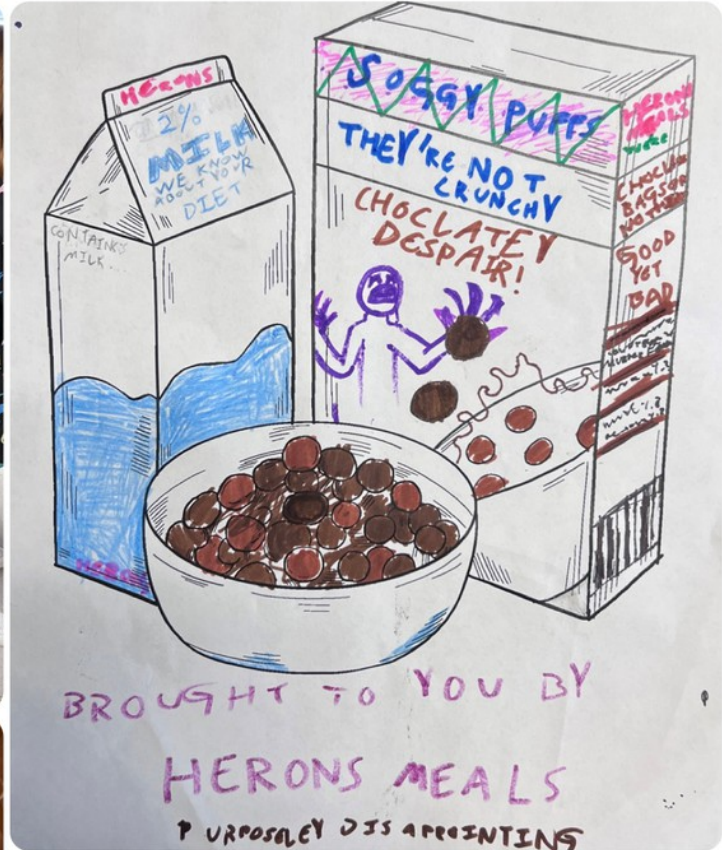 HERONS
2%
MILK
WE KNOW
ABOUT YOUR
DIET
CONTAINS
MILK...
HERONS
SOGGY PUFFS
THEY'RE NOT
CRUNCHY
CHOCLATEY
DESPAIR!
HERONS
MEALS
GOOD
YET
BAD
BROUGHT TO YOU BY
HERONS MEALS
PURPOSELEY DISAPPOINTING